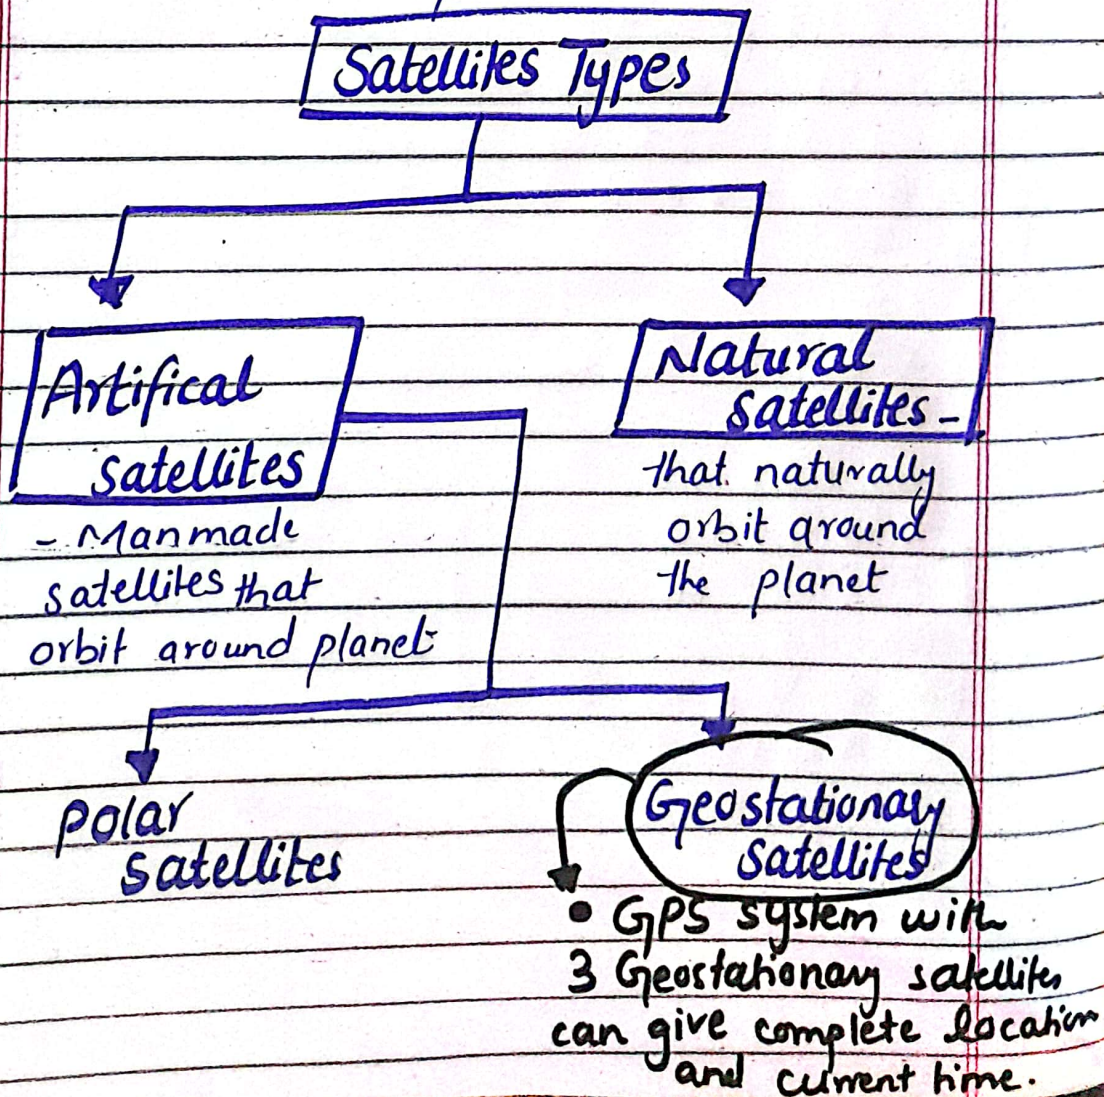 Satellites Types
Artifical
satellites
- Manmade
satellites that
orbit around planet
Natural
satellites -
that naturally
orbit around
the planet
Polar
satellites
Geostationary
Satellites
• GPS system with
3 Geostationary satellites
can give complete location
and current time.